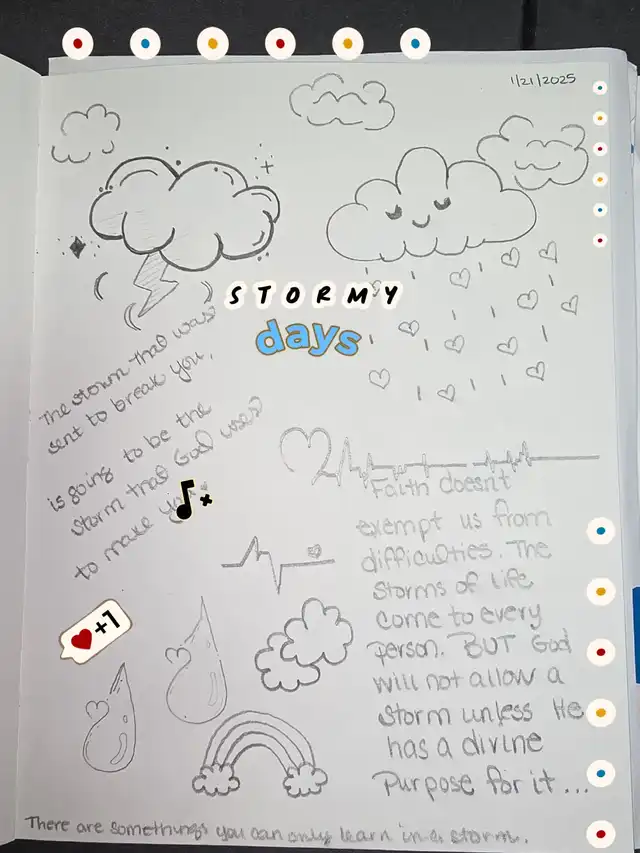 1/21/2025
STORMY
days
The storm that was
sent to break you,
is going to be the
storm that God uses
to make
Faith doesn't
exempt us from
difficulties. The
storms of life
come to every
person. BUT God
will not allow a
storm unless He
has a divine
Purpose for it...
+1
There are somethings you can only learn in a storm.